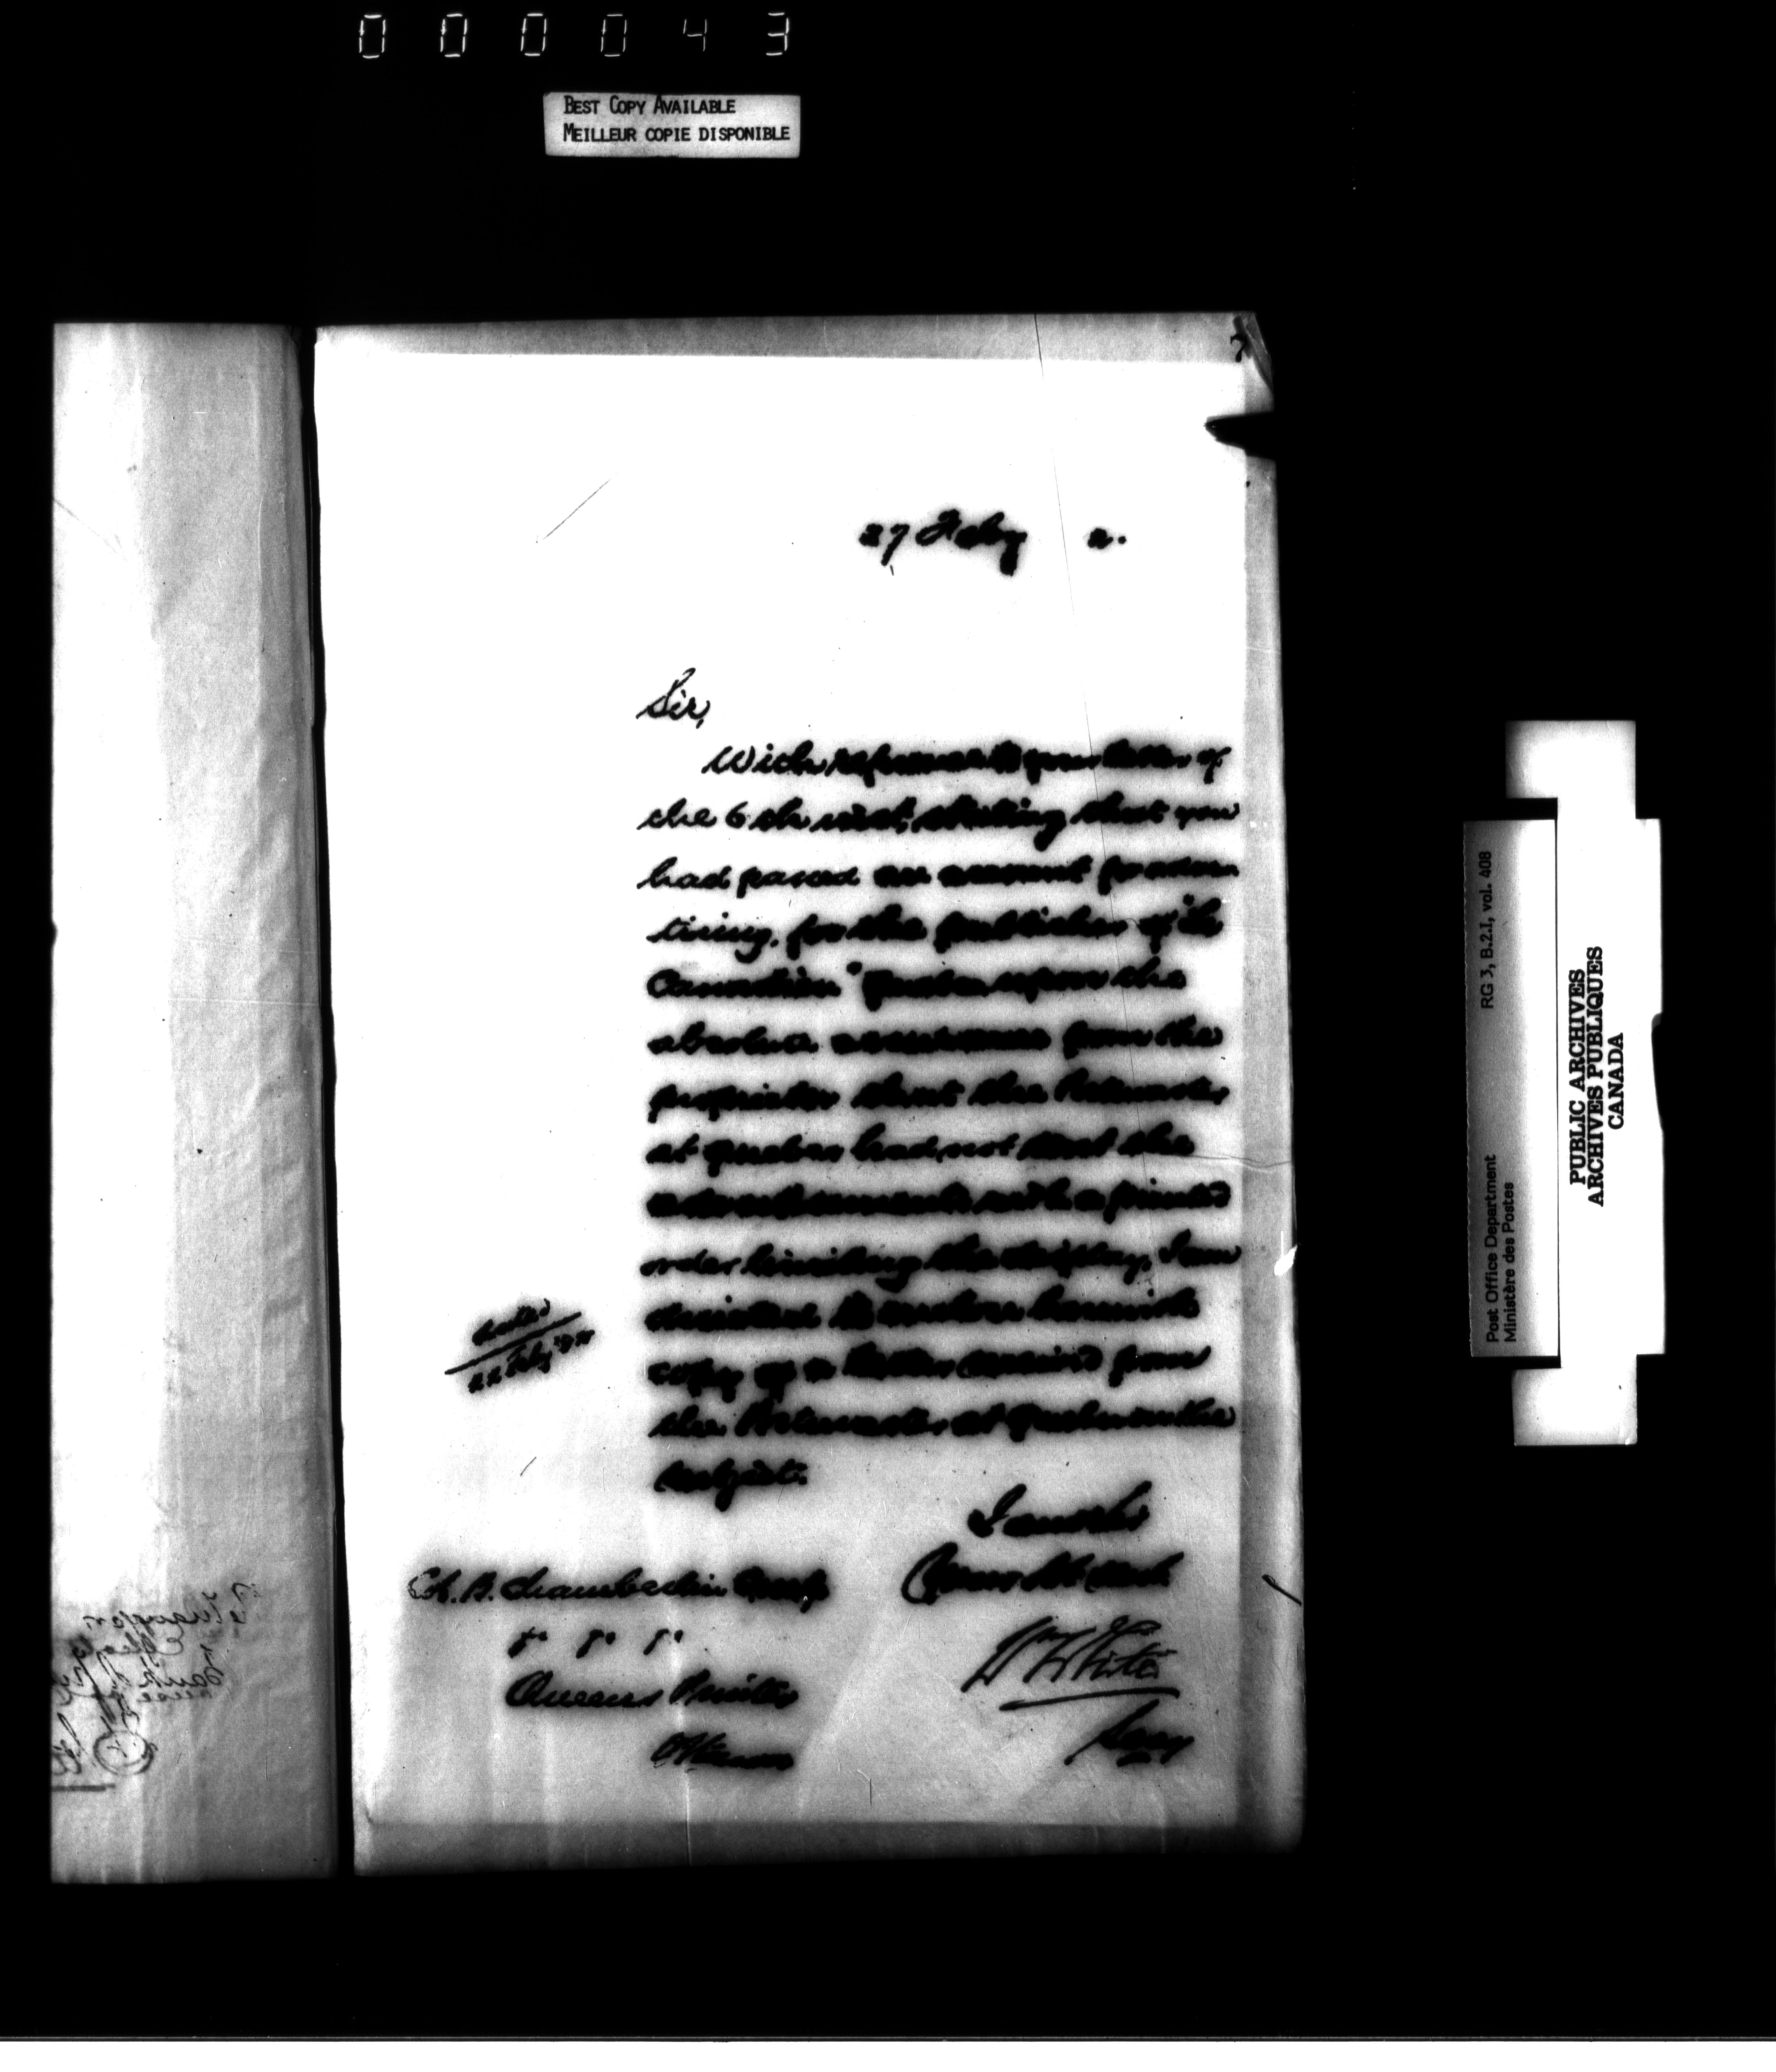 000043
BEST COPY AVAILABLE
MEILLEUR COPIE DISPONIBLE
27 Feby 2.
Sir,
With reference to your letter of
the 6th inst, stating that you
had passed an account for adver
tising, for the publisher of "Le
Canadien" Quebec, upon the
absolute assurance from the
proprietor that the Postmaster
at Quebec had not sent the
advertisements with a printed
order limiting the display, I am
directed to enclose herewith
copy of a letter received from
the Postmaster at Quebec on the
subject.
dated
22 Feby
I am Sir
Your Ob Servt
W White
Secy
Col. B. Chamberlin
&c &c &c
Queens Printer
Ottawa
Post Office Department RG 3, B.2.I, vol. 408
Ministère des Postes
PUBLIC ARCHIVES
ARCHIVES PUBLIQUES
CANADA